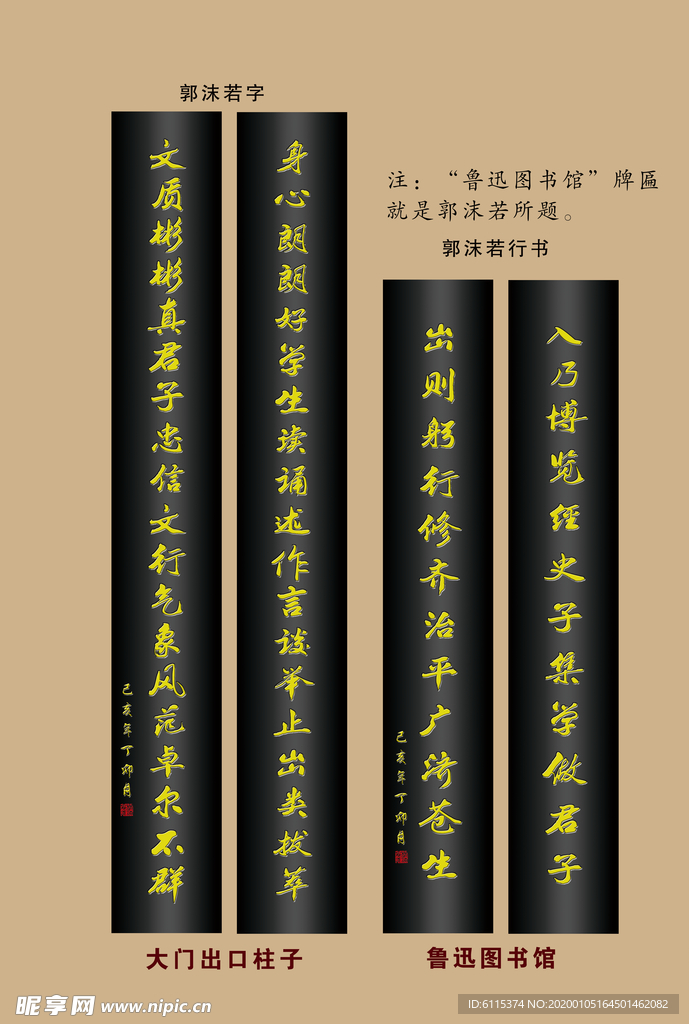 郭沫若字
身心朗朗好学生读诵述作言谈举止出类拔萃
文质彬彬真君子忠信文行气象风范卓尔不群
己亥年丁卯月
大门出口柱子
注：“鲁迅图书馆”牌匾
就是郭沫若所题。
郭沫若行书
入乃博览经史子集学做君子
出则躬行修齐治平广济苍生
己亥年丁卯月
鲁迅图书馆
昵享网 www.nipic.cn
ID:6115374 NO:20200105164501462082